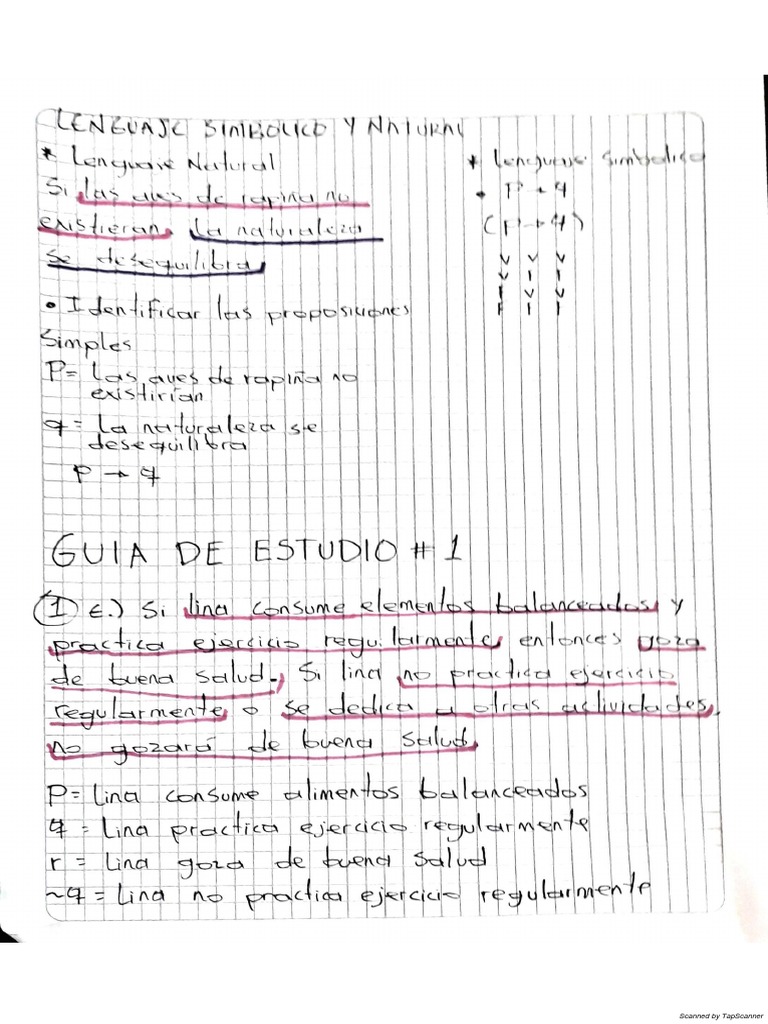 LENGUAJE SIMBOLICO Y NATURAL
* Lenguaje Natural
Si las aves de rapiña no
existieran, la naturaleza
se desequilibra
• Identificar las proposiciones
Simples
P= Las aves de rapiña no
existirían
q = La naturaleza se
desequilibra
P → q
* Lenguaje Simbolico
• P → q
(P → q)
V V V
V F F
F V V
F F
GUIA DE ESTUDIO # 1
1 E.) Si lina consume elementos balanceados y
practica ejercicio regularmente, entonces goza
de buena salud. Si lina no practica ejercicio
regularmente o se dedica a otras actividades,
no gozará de buena salud.
P = Lina consume alimentos balanceados
q = Lina practica ejercicio regularmente
r = Lina goza de buena salud
~q = Lina no practica ejercicio regularmente
Scanned by TapScanner